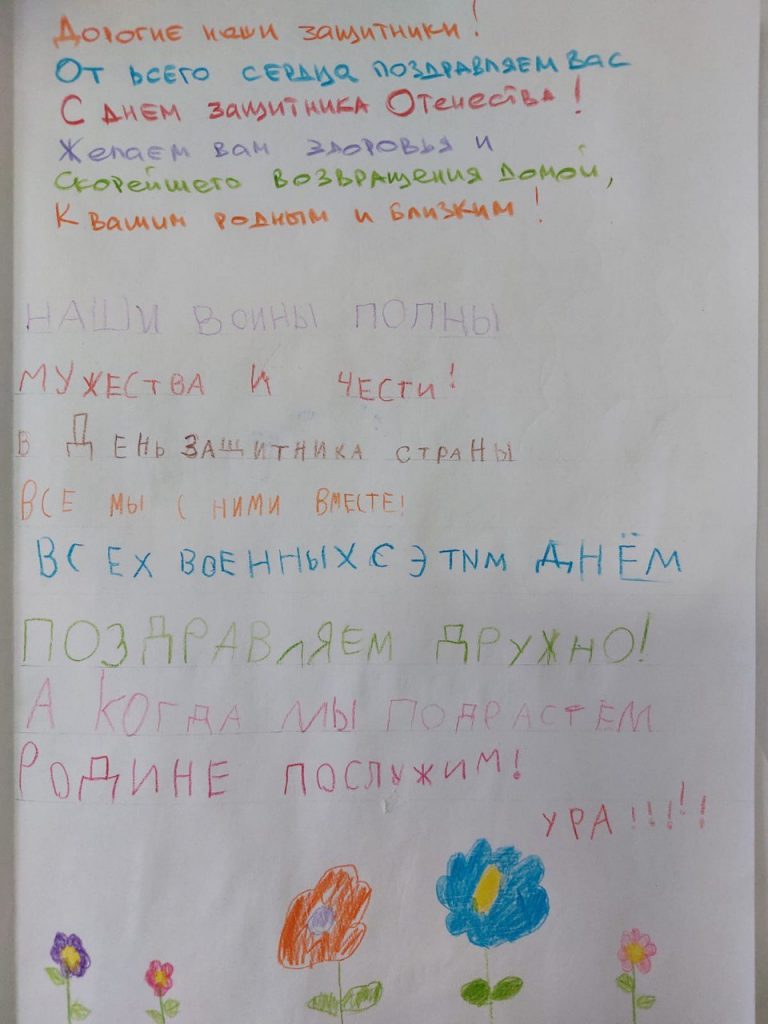 Дорогие наши защитники!
От всего сердца поздравляем вас
С днем защитника Отечества!
Желаем вам здоровья и
Скорейшего возвращения домой,
К вашим родным и близким!
НАШИ ВОИНЫ ПОЛНЫ
МУЖЕСТВА И ЧЕСТИ!
В ДЕНЬ ЗАЩИТНИКА СТРАНЫ
ВСЕ МЫ С НИМИ ВМЕСТЕ!
ВСЕХ ВОЕННЫХ С ЭТИМ ДНЁМ
ПОЗДРАВЛЯЕМ ДРУЖНО!
А КОГДА МЫ ПОДРАСТЕМ
РОДИНЕ ПОСЛУЖИМ!
УРА!!!!!